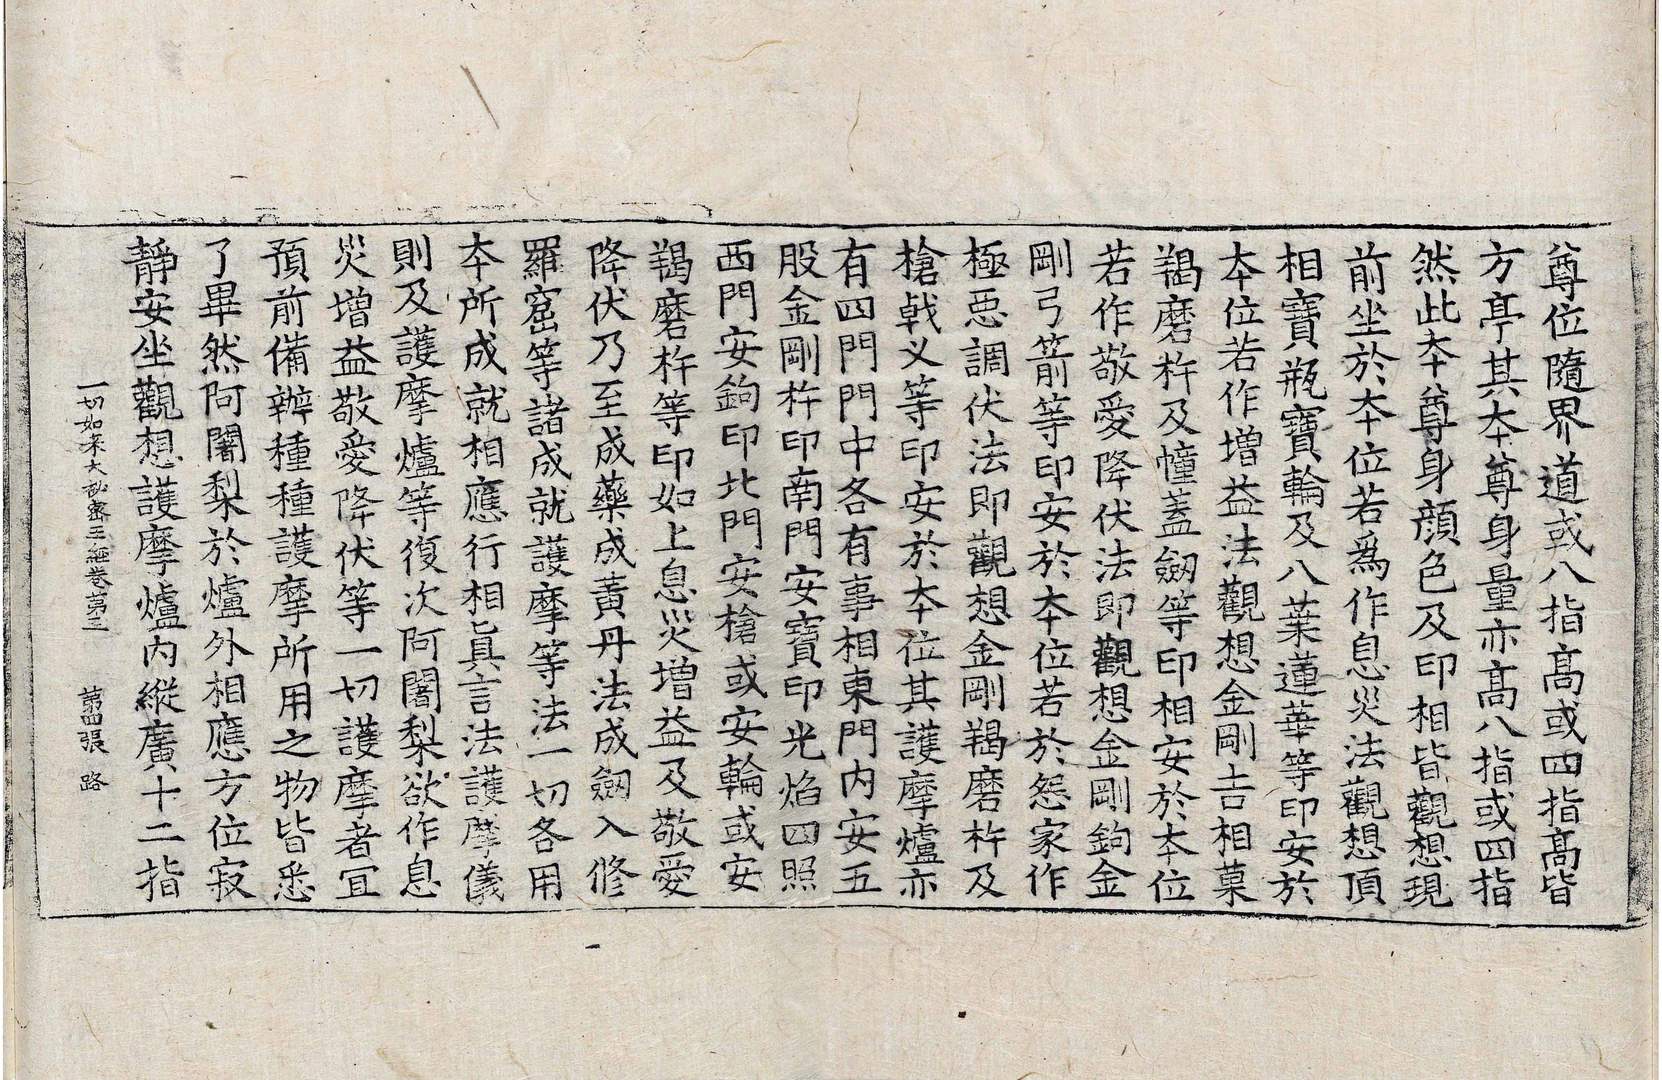 尊位隨界道或八指高或四指高皆
方亭其夲尊身量亦高八指或四指
然此夲尊身顔色及印相皆觀想現
前坐於夲位若爲作息災法觀想頂
相寶瓶寶輪及八葉蓮華等印安於
夲位若作增益法觀想金剛吉相菓
羯磨杵及幢盖劒等印相安於夲位
若作敬愛降伏法即觀想金剛鉤金
剛弓箭等印安於夲位若於怨家作
極惡調伏法即觀想金剛羯磨杵及
槍戟义等印安於夲位其護摩爐亦
有四門門中各有事相東門内安五
股金剛杵印南門安寶印光焰四照
西門安鉤印北門安槍或安輪或安
羯磨杵等印如上息災增益及敬愛
降伏乃至成藥成黃丹法成劒入修
羅窟等諸成就護摩等法一切各用
夲所成就相應行相眞言法護摩儀
則及護摩爐等復次阿闍梨欲作息
災增益敬愛降伏等一切護摩者冝
預前備辦種種護摩所用之物皆悉
了畢然阿闍梨於爐外相應方位寂
靜安坐觀想護摩爐内縱廣十二指
一切如来大秘密王經卷第三 第四張 路